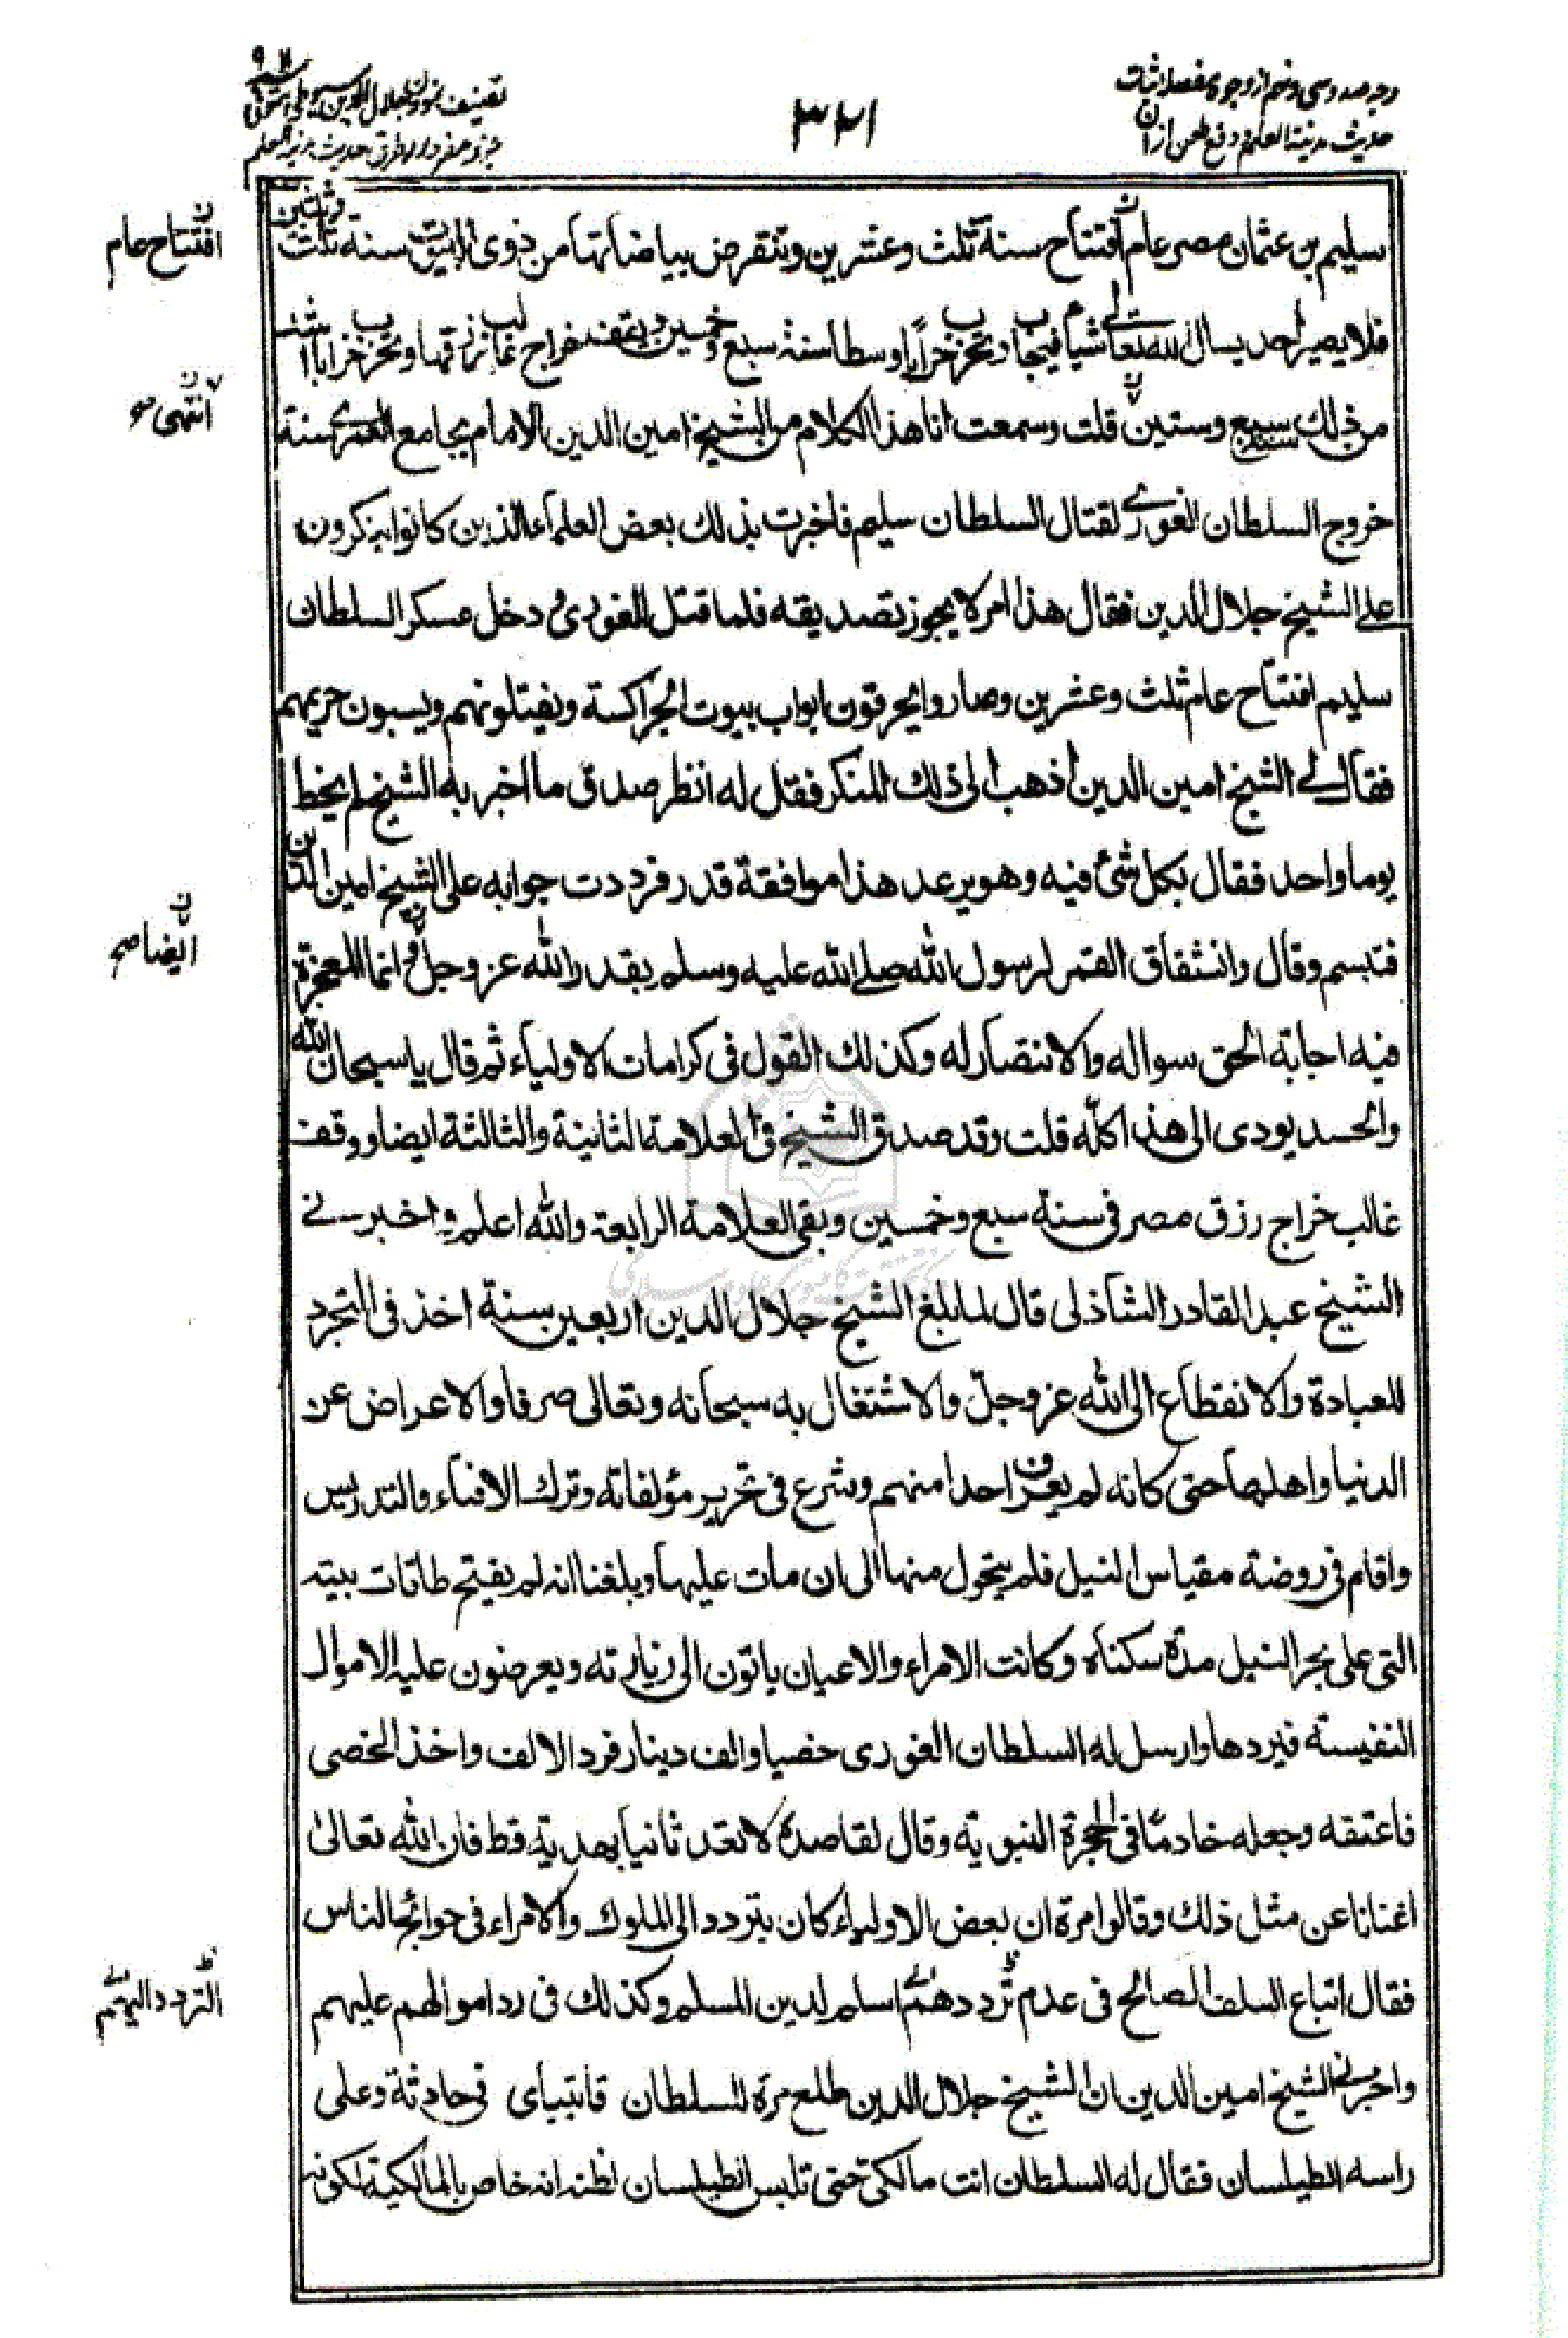 وجه صد و سی و پنجم از وجوه مفصله اثبات
حدیث مدینة العلم و دفع طعن ازان
۳۲۱
تصنیف نمودن جلال الدین سیوطی
حدیث مدینة العلم
سليم بن عثمان مصر عام افتتاح سنة ثلث وعشرين وتنقرض بياضاتها من ذوى البيوت سنة ثلث وثلثين
فلا يصير احد يسال الله تعالى شيئا فيجاب وتخرب خرابا وسطا سنة سبع وخمسين
من ذلك سبع وستين قلت وسمعت انا هذا الكلام من الشيخ امين الدين الامام بجامع الغمرى سنة
خروج السلطان الغورى لقتال السلطان سليم فاخبرت بذلك بعض العلماء الذين كانوا ينكرون
على الشيخ جلال الدين فقال هذا امر لا يجوز تصديقه فلما قتل الغورى و دخل عسكر السلطان
سليم افتتاح عام ثلث وعشرين وصاروا يحرقون ابواب بيوت الجراكسة ويقتلونهم ويسبون حريمهم
فقال لى الشيخ امين الدين اذهب الى ذلك المنكر فقل له انظر صدق ما اخبر به الشيخ لم يخط
يوما واحد فقال بكل شئ فيه وهو يرعد هذا موافقة قدر فرددت جوابه على الشيخ امين الدين
فتبسم وقال وانشقاق القمر لرسول الله صلى الله عليه وسلم بقدر الله عز وجل وانما المعجزة
فيه اجابة الحق سواله والانتصار له وكذلك القول فى كرامات الاولياء ثم قال يا سبحان الله
والحسد يودى الى هذا كلّه قلت وقد صدق الشيخ فى العلامة الثانية والثالثة ايضا ووقف
غالب خراج رزق مصر فى سنة سبع وخمسين وبقى العلامة الرابعة والله اعلم واخبرنى
الشيخ عبد القادر الشاذلى قال لما بلغ الشيخ جلال الدين اربعين سنة اخذ فى التجرد
للعبادة والانقطاع الى الله عز وجلّ والاشتغال به سبحانه وتعالى صرفا والاعراض عن
الدنيا واهلها حتى كانه لم يعرف احدا منهم وشرع فى تحرير مؤلفاته وترك الافتاء والتدريس
واقام فى روضة مقياس النيل فلم يتحول منها الى ان مات عليها وبلغنا انه لم يفتح طاقات بيته
التى على بحر النيل مدّة سكناه وكانت الامراء والاعيان ياتون الى زيارته ويعرضون عليه الاموال
النفيسته فيردها وارسل له السلطان الغورى خصيا والف دينار فرد الالف واخذ الخصى
فاعتقه وجعله خادمًا فى الحجرة النبوية وقال لقاصده لا تعد ثانيا بهدية قط فان الله تعالى
اغنانا عن مثل ذلك وقالوا مرة ان بعض الاولياء كان يتردد الى الملوك والامراء فى حوائج الناس
فقال اتباع السلف الصالح فى عدم تردد هم اسلم لدين المسلم وكذلك فى رد اموالهم عليهم
واخبرنى الشيخ امين الدين ان الشيخ جلال الدين طلع مرة للسلطان قايتباى فى حادثة وعلى
راسه الطيلسان فقال له السلطان انت مالكى حتى تلبس الطيلسان لظنه انه خاص بالمالكية لكونه
افتتاح عام
انتهى
ايضا
التردد اليهم